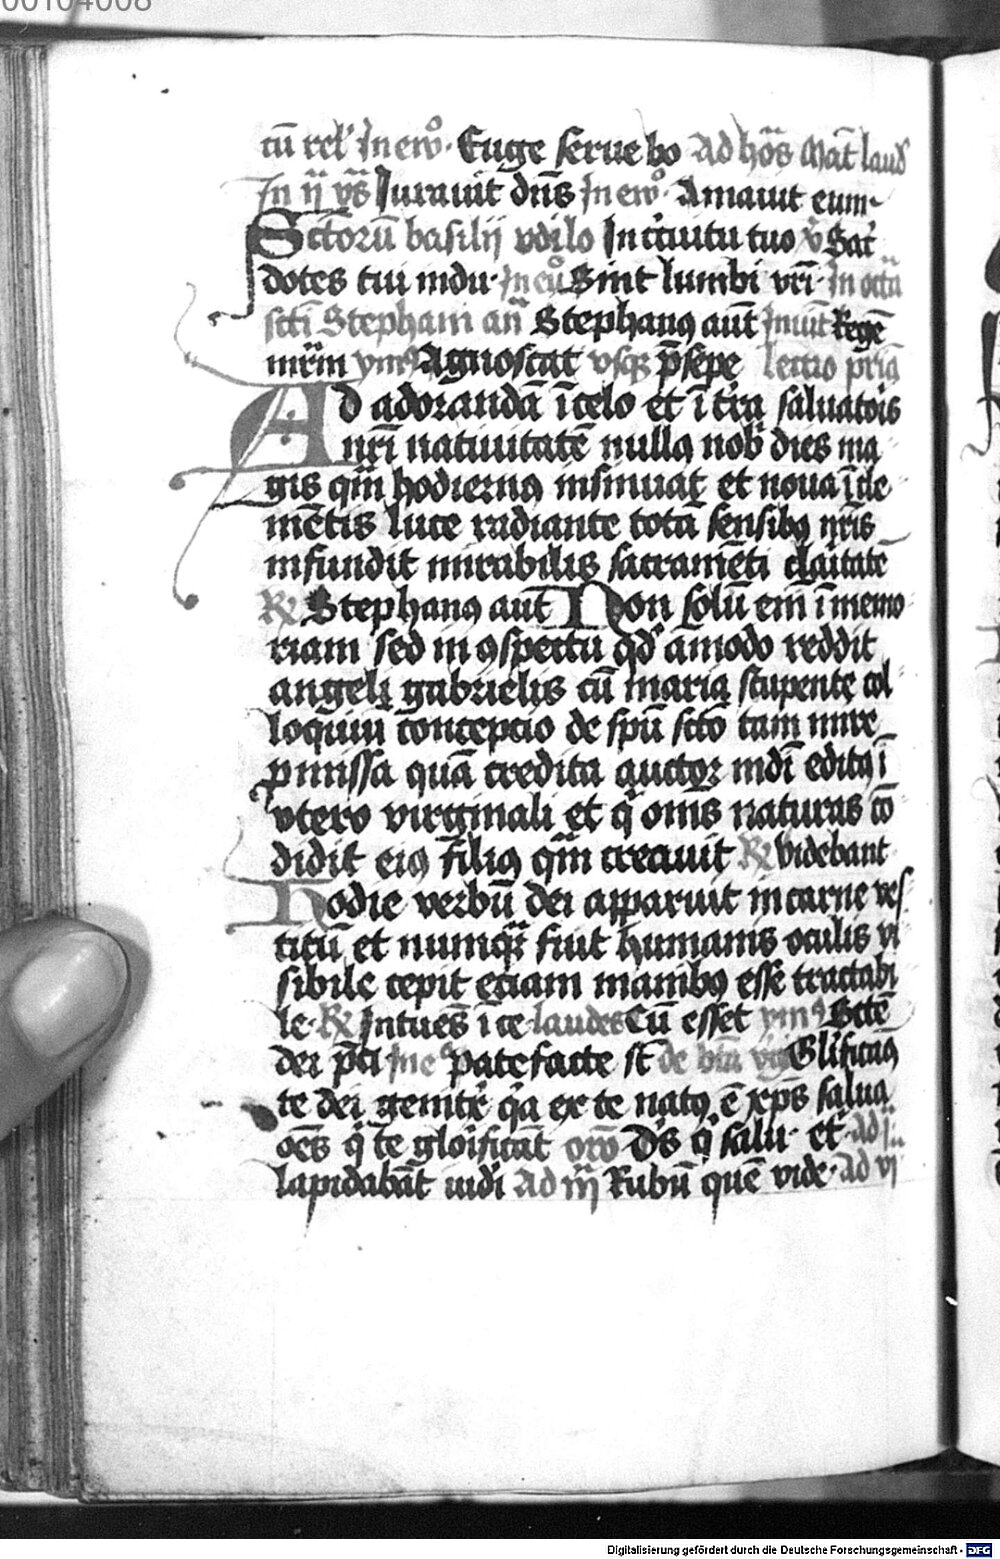 00104008
cū rel' In ewͦ. Euge serue bo Ad hōs Mat̄ laud
In ij vs̄ Jurauit dn̄s In ewͦ. Amauit eum
Sctōrū basilij vdilo In cīuitu tuo v̄ Sac̄
dotes tui indu. In eu Sint lumbi vrī. In octā
scti Stephani an̄ Stephanꝰ aut̄ Inuit Regē
mr̄m ymꝰ Agnoscat vsqꝫ p̄sepe Lectio pria
Ad adorandā ī celo et ī tr̄a saluatoīs
nrī natiuitatē nullꝰ nob̄ dies ma
gis qm̄ hodiernꝰ insinuat et noua ī de
mētis luce radiante totā sensibꝰ nr̄is
infundit mirabilis sacramēti claītatē
℟ Stephanꝰ aut̄ Non solū em̄ ī memo
riam sed in ꝯspectu qd' āmodo reddit
angeli gabrielis cū maria stupente col
loquiū concepcio de spū sctō tam mire
ꝓmissa quā credita auctor mdī editꝰ ī
vtero virginali et q̄ om̄s naturas cō
didit eiꝰ filiꝰ qm̄ creauit ℟ Videbant
Hodie verbū dei apparuit in carne ves
titū et numqꝫ fuit humanis oculis vi
sibile cepit eciam manibꝰ esse tractabi
le. ℟ Intuēs ī ce laudes Cū esset ymꝰ Sctē
dei p̄ci In e Patefacte st̄ de btā vḡ Glīficatꝰ
te dei genitr̄ q̄a ex te natꝰ ē xp̄s salua
oēs q̄ te gloīficāt orō Ds̄ q̄ salu. et ad
lapidabāt iudī Ad iij Rubū quē vide. ad vi
Digitalisierung gefördert durch die Deutsche Forschungsgemeinschaft - DFG